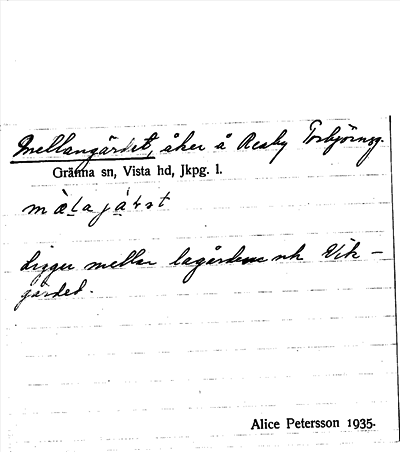 Mellangärdet, åker å Reaby Torbjörnsg.
Gränna sn, Vista hd, Jkpg. l.
Ligger mellan lagården och Vik-
gärdet.
Alice Petersson 1935.